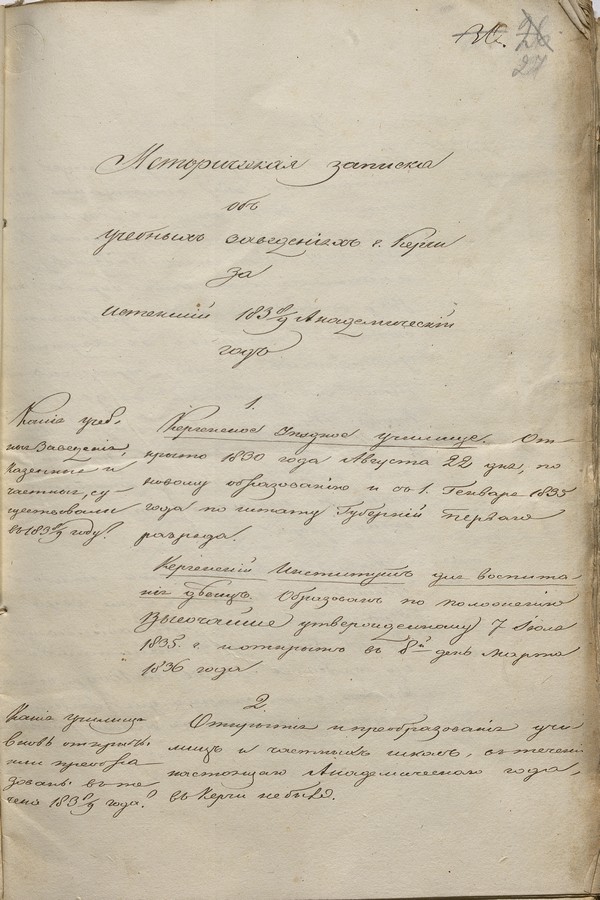 26
27
Историческая записка
объ
учебныхъ заведеніяхъ г. Керчи
за
истекшій 183 8/9 Академическій
годъ
1.
Какія учеб-
ныя Заведенія,
казенныя и
частныя, су-
ществовали
въ 183 8/9 году?
Керченское Уѣздное училище. От-
крыто 1830 года Августа 22 дня, по
новому образованію и съ 1. Генваря 1835
года по штату Губерній перваго
разряда.
Керченскій Институтъ для воспита-
нія дѣвицъ. Образованъ по положенію
Высочайше утвержденному 7 Іюля
1835. г. и открытъ въ 8й день Марта
1836 года.
2.
Какія училища
вновь открыты
или преобра-
зованы въ те-
ченіи 183 8/9 года?
Открытія и преобразованія учи-
лищъ и частныхъ школъ, въ теченіи
настоящаго Академическаго года,
въ Керчи не было.